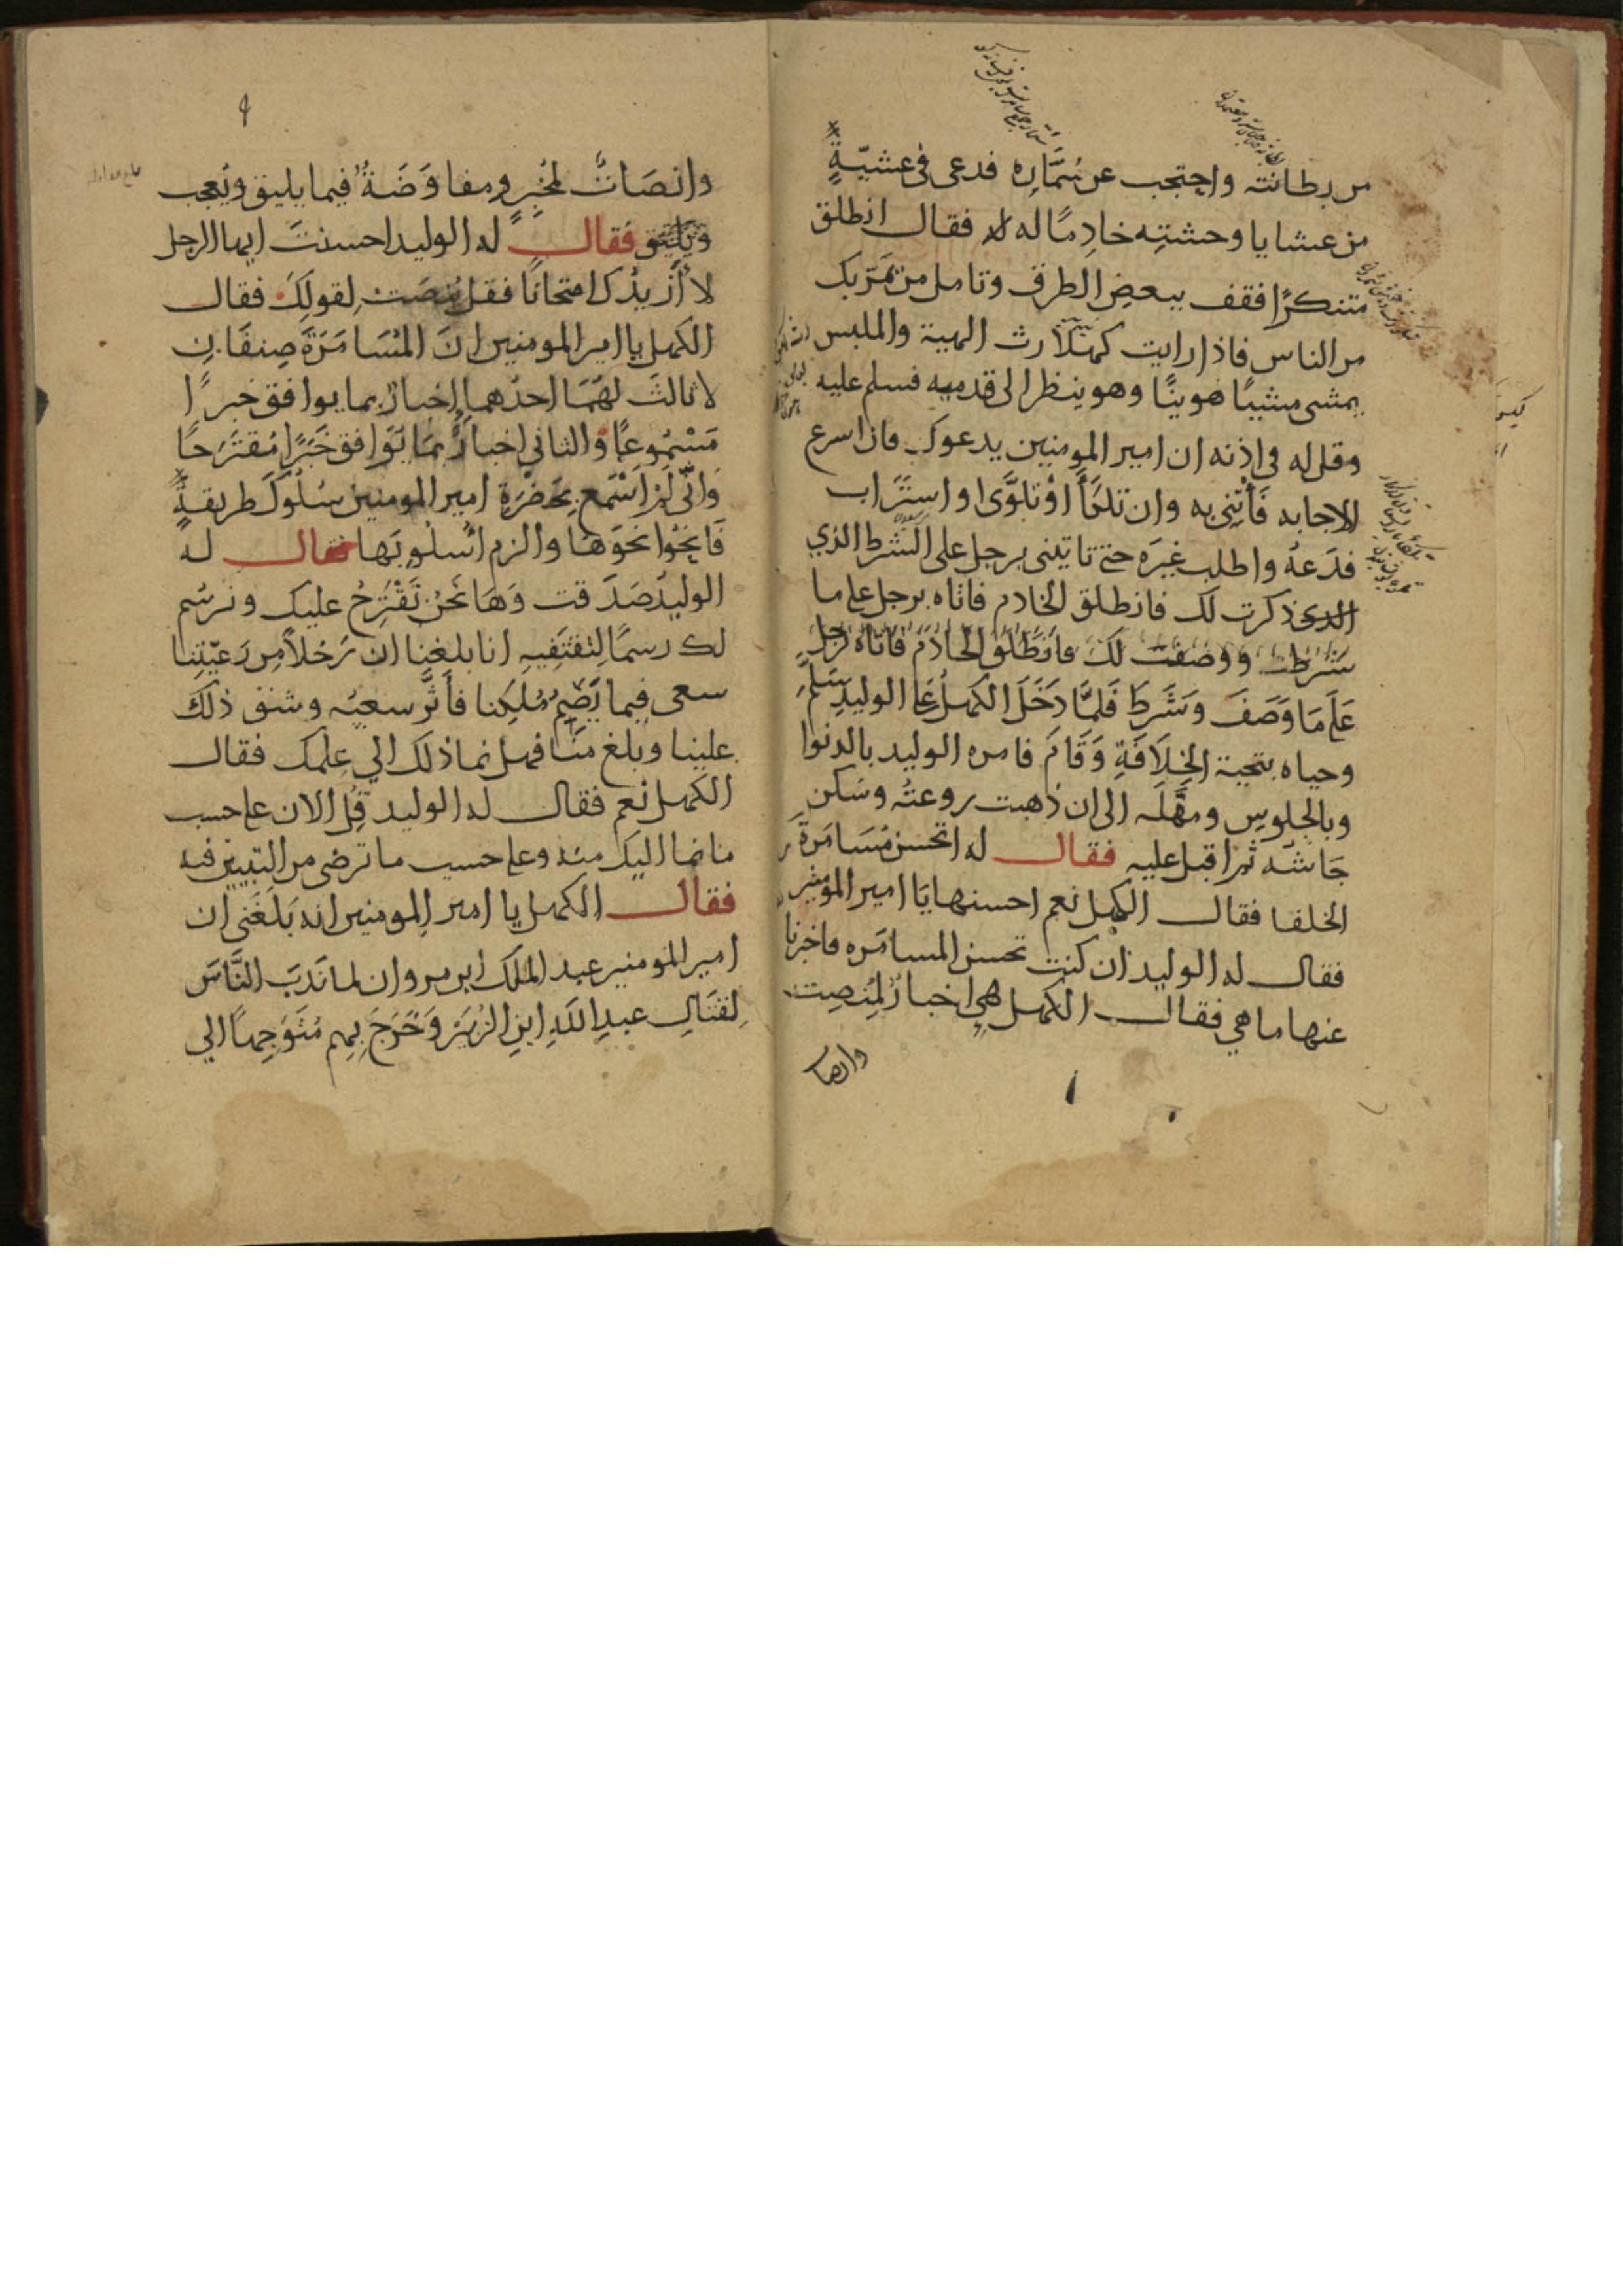 من بطانته واحتجب عن سُمَّارِه فدعى فى عشيّةٍ
من عشايا وحشتِه خادِمًا له فقال انطلق
متنكرًا فقف ببعضِ الطرق وتامل من يَمرّ بك
من الناس فاذا رايت كهلًا رث الهية والملبس
يمشى مشيًا هوينًا وهو ينظر الى قدميه فسلم عليه
وقل له فى اذنه ان امير المومنين يدعوك فان اسرع
للاجابه فَأْتِنى به وان تلكَّأَ اوْ تلوَّى او استَرَاب
فدَعهُ واطلب غيرَه حتى تاتينى برجل على الشرط الذي
الذى ذكرت لك فانطلق الخادم فاتاه برجل على ما
شَرَطت ووصفت لكَ فانطَلَق الخادم فاتاه برجل
عَلَى مَا وَصَفَ وَشَرَطَ فَلمَّا دَخَلَ الكهلُ عَلى الوليدِ سَلَّم
وحياه بتحية الخِلَافَةِ وَقَامَ فامره الوليد بالدنوا
وبالجلوسِ ومهَّلَه الى ان ذهبت روعتُه وسَكن
جَاشُه ثم اقبل عليه فقال له اتحسن مُسَامَرةَ
الخلفا فقال الكهل نعم احسنها يَا امير المومنين
فقال له الوليد ان كنت تحسن المسامَره فاخبرنا
عنها ما هي فقال الكهل هي اخبارٌ لمُنصِت
وانصا
وانصَاتٌ لمُخبِرٍ ومفاوَضَةٌ فيما يليق ويُعجب
ويَلِيق فقال له الوليد احسنتَ ايها الرجل
لا أَزيدُك امتحانًا فقل يُنصَت لقولِكَ فقال
الكهل يا امير المومنين انَ المُسَامَرَةَ صِنفَانِ
لا ثالثَ لهُمَا احدُهما اِخبارٌ بما يوافق خبرًا
مَسْمُوعًا والثاني اخبارٌ بمَا يُوَافق خَبَرًا مُقتَرَحًا
وَانّى لَمْ اَسْمَع بِحَضْرَةِ امير المومنين سُلُوكَ طريقةٍ
فَانحُوا نحوَهَا والزم اُسلُوبَها فقال له
الوليدُ صَدَقت وَهَا نَحْنُ نَقْتَرِحُ عليك ونرسُم
لك رسمًا لِتَقتفِيهِ انا بلغنا ان رَجُلاً مِن رَعيّتِنا
سعى فيما يَضِيمُ مُلكِنا فأَثَّر سعيُه وشق ذلكَ
علينا وبلغ منّا فهل نما ذلك الي عِلمك فقال
الكهل نعم فقال له الوليد قُلِ الان على حسب
ما نما اليك منه وعلى حسب ما ترضى من التبيين فيه
فقال الكهل يا امير المومنين انه بَلَغَنى ان
امير المومنين عبد الملك ابن مروان لما نَدَبَ النَّاسَ
لِقتَالِ عبدِ اللهِ ابنِ الزُبَيْرِ وَخَرَجَ بِهِم مُتَوَجِهًا الي